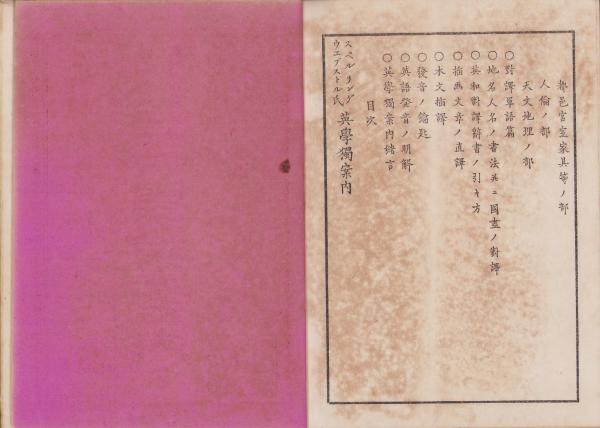 ウエブストル氏
スペルリング
英學獨案内
目次
○英學獨案内緒言
○英語發音ノ明解
○發音ノ鑰匙
○本文插譯
○插画文章ノ直譯
○英和對譯辞書ノ引キ方
○地名人名ノ書法并ニ國畫ノ對譯
○對譯單語篇
天文地理ノ部
人倫ノ部
都邑宮室家具等ノ部